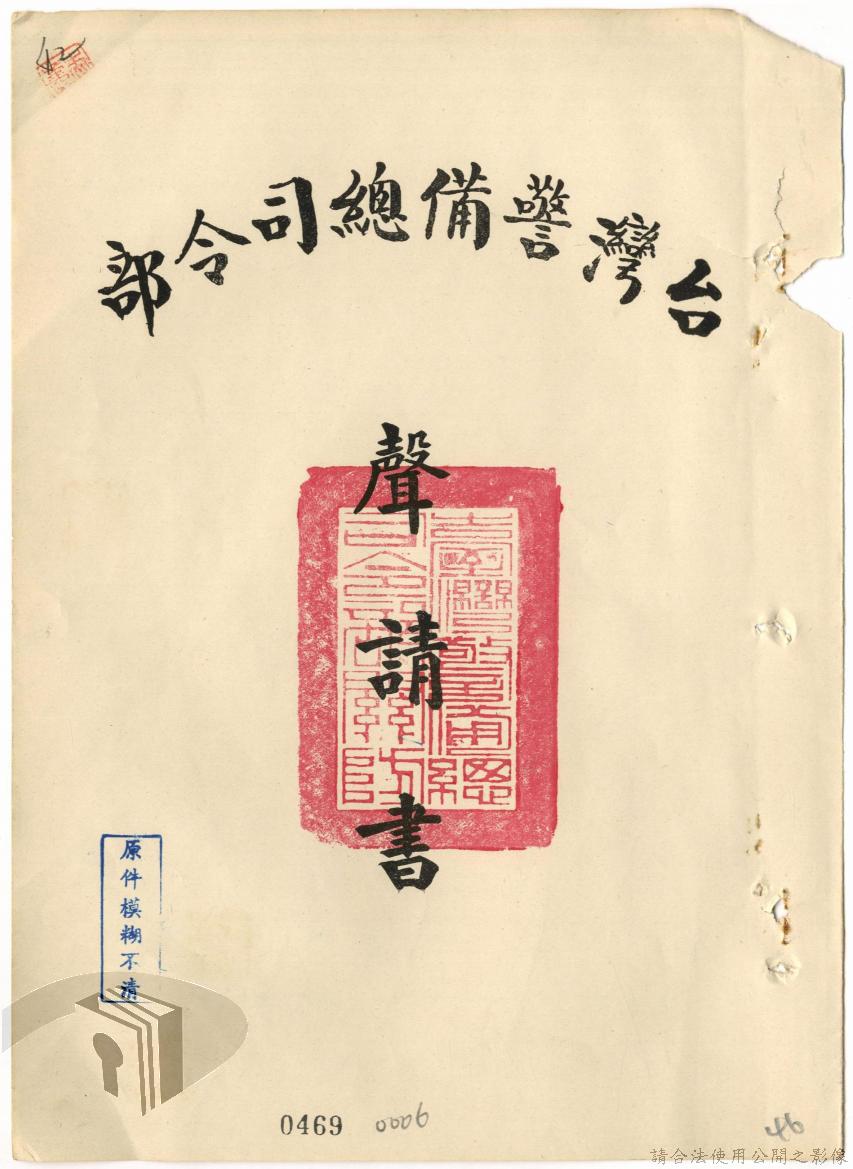 42
台灣警備總司令部
聲請書
臺灣警備總
司令部關防
原件模糊不清
0469
0006
46
請合法使用公開之影像